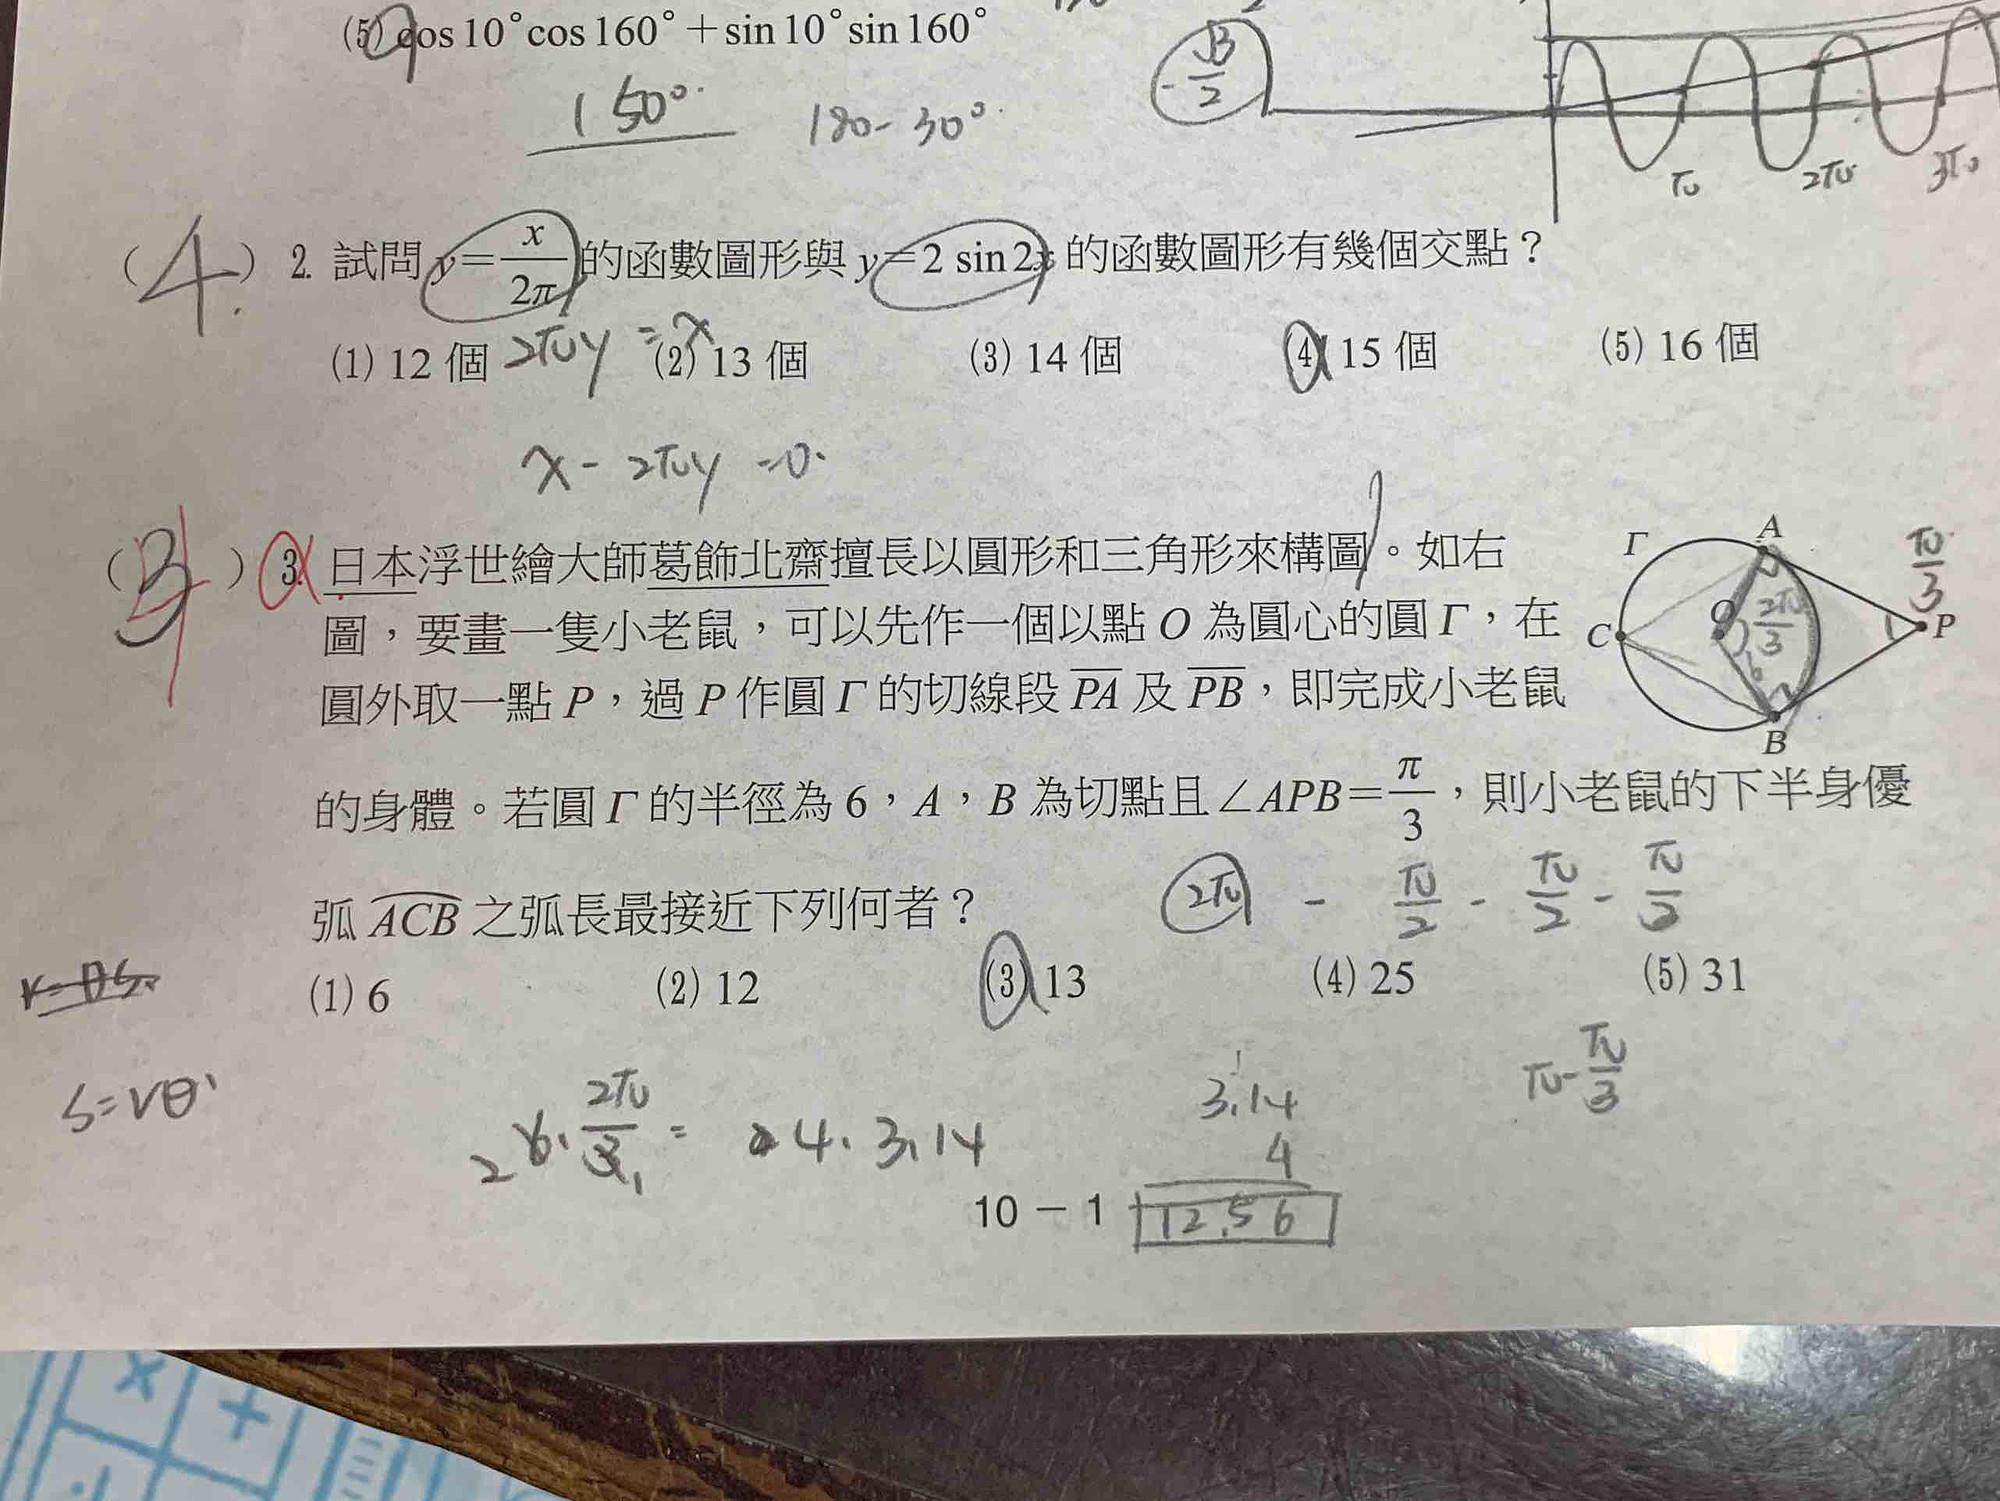 (5) cos 10°cos 160°＋sin 10°sin 160°
-√3/2
150°
180-30°
π 2π 3π
(4.) 2. 試問 y＝x/2π 的函數圖形與 y＝2 sin 2x 的函數圖形有幾個交點？
(1) 12 個 (2) 13 個 (3) 14 個 (4) 15 個 (5) 16 個
2πy = x
x - 2πy = 0
( ) 3. 日本浮世繪大師葛飾北齋擅長以圓形和三角形來構圖。如右
圖，要畫一隻小老鼠，可以先作一個以點 O 為圓心的圓 Γ，在
圓外取一點 P，過 P 作圓 Γ 的切線段 PA 及 PB，即完成小老鼠
的身體。若圓 Γ 的半徑為 6，A，B 為切點且∠APB＝π/3，則小老鼠的下半身優
弧 ACB 之弧長最接近下列何者？
Γ A π/3
C O 2π/3 P
6
B
2π - π/2 - π/2 - π/3
(1) 6 (2) 12 (3) 13 (4) 25 (5) 31
S=rθ
π-π/3
2 6·2π/3 1 = 4·3.14
3.14
4
12.56
10－1